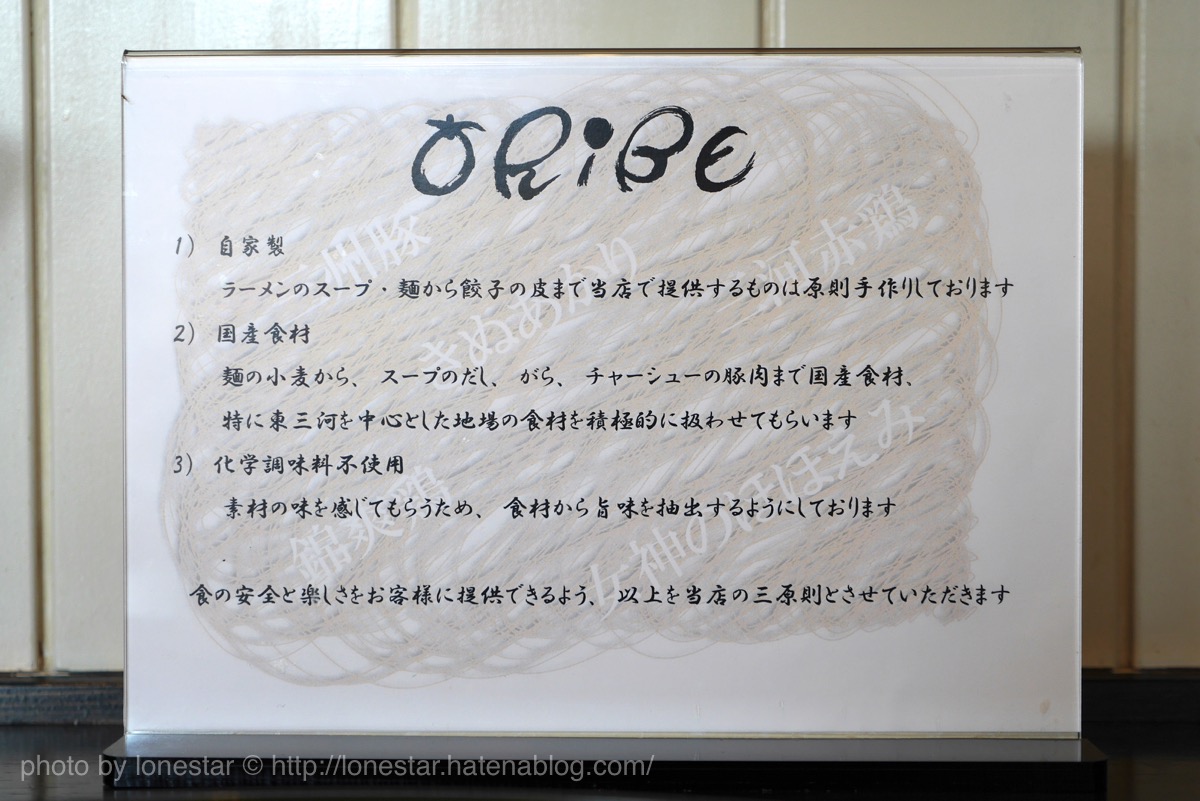 ORiBE
1) 自家製
ラーメンのスープ・麺から餃子の皮まで当店で提供するものは原則手作りしております
2) 国産食材
麺の小麦から、スープのだし、がら、チャーシューの豚肉まで国産食材、
特に東三河を中心とした地場の食材を積極的に扱わせてもらいます
3) 化学調味料不使用
素材の味を感じてもらうため、食材から旨味を抽出するようにしております
食の安全と楽しさをお客様に提供できるよう、以上を当店の三原則とさせていただきます
州豚
きぬあかり
河赤鶏
錦爽鶏
女神のほほえみ
photo by lonestar © http://lonestar.hatenablog.com/